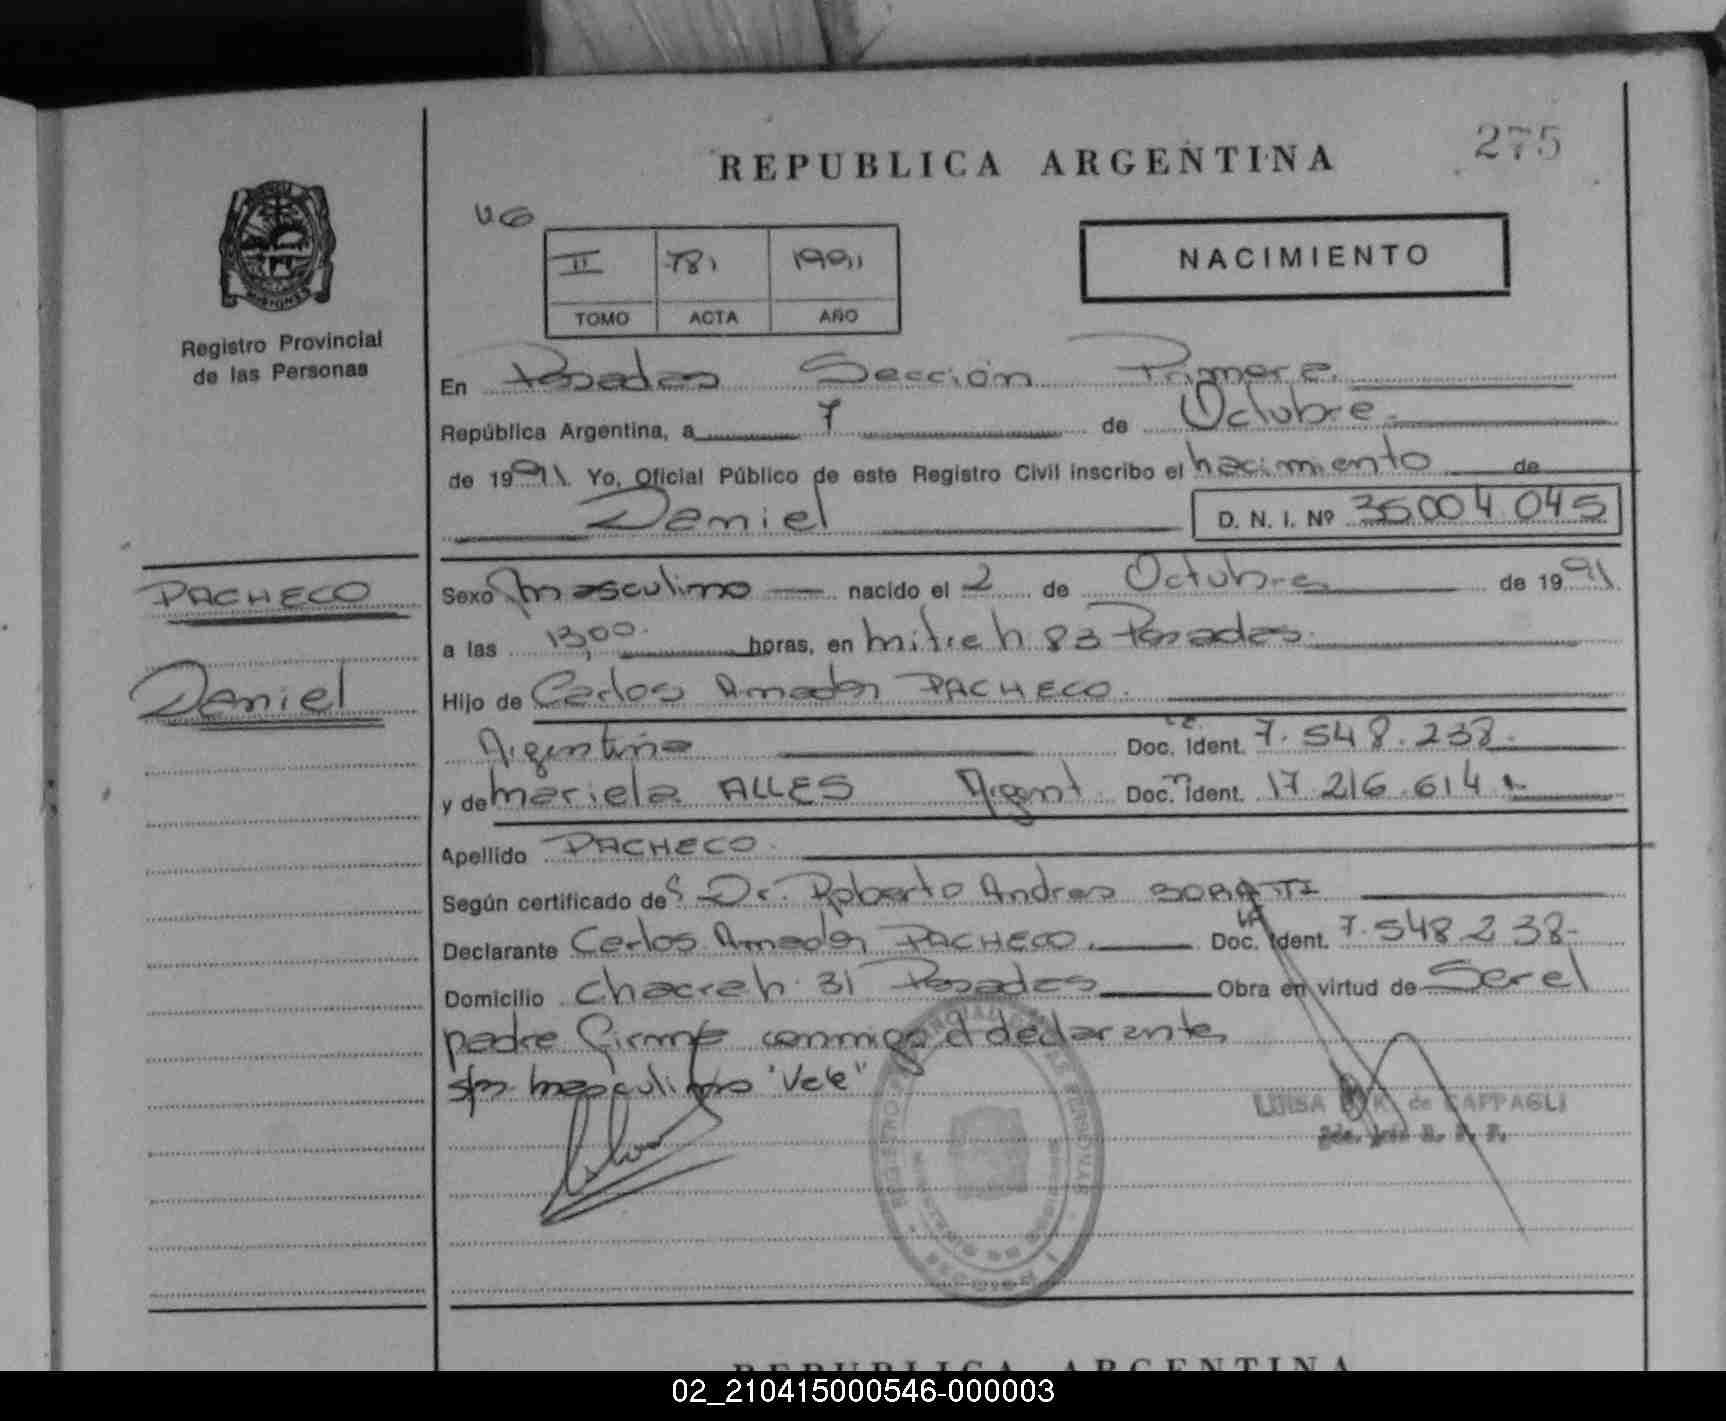 REPUBLICA ARGENTINA
275
MISIONES
Registro Provincial
de las Personas
UG
II 781 1991
TOMO ACTA AÑO
NACIMIENTO
En Posadas Sección Primera
República Argentina, a 7 de Octubre
de 1991 Yo, Oficial Público de este Registro Civil inscribo el nacimiento de
Daniel D. N. I. Nº 36004045
PACHECO
Daniel
Sexo masculino nacido el 2 de Octubre de 1991
a las 13,00 horas, en Mitre h 83 Posadas
Hijo de Carlos Amador PACHECO
Argentina Doc. Ident. 7.548.238
y de Mariela ALLES Argent Doc. Ident. 17.216.614
Apellido PACHECO
Según certificado de Dr. Roberto Andres BORATTI
Declarante Carlos Amador PACHECO Doc. Ident. 7.548.238
Domicilio Chacrah 31 Posadas Obra en virtud de Ser el
padre Firma conmigo el declarante
s/r masculino "Vale"
LUISA de CAPPAGLI
REPUBLICA ARGENTINA
02_210415000546-000003